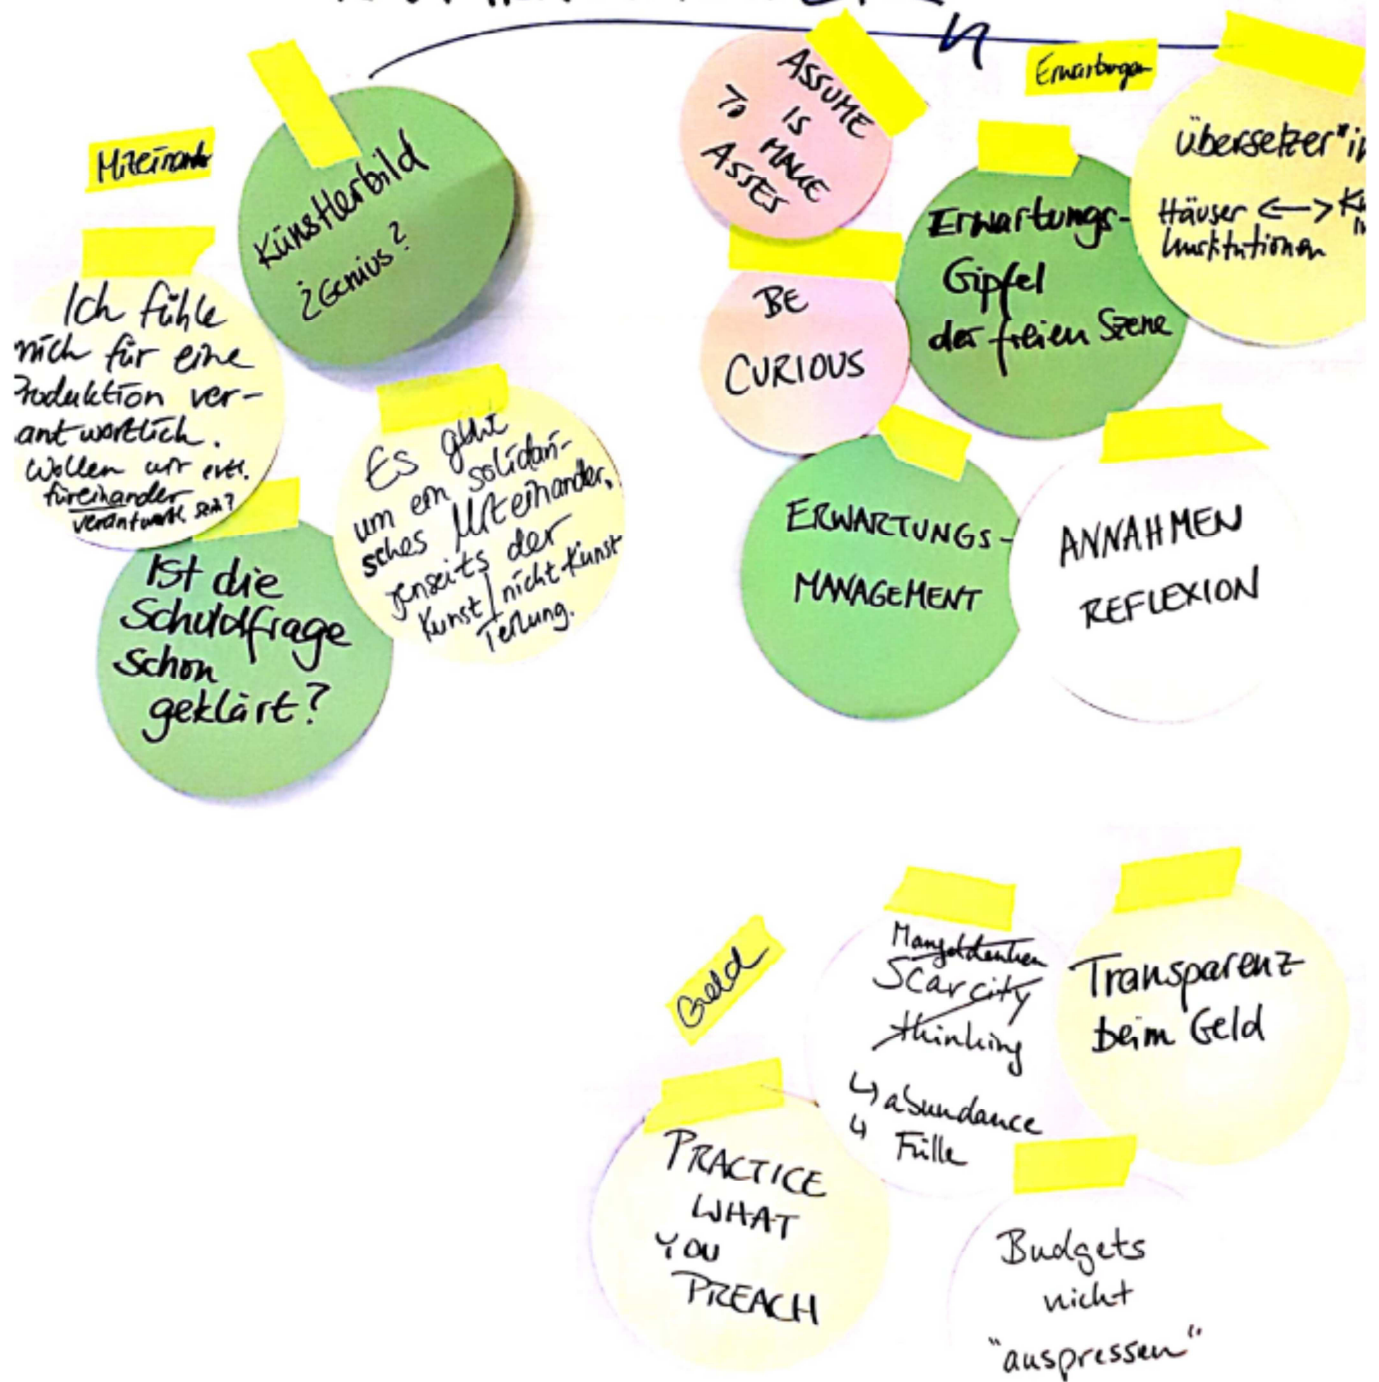 Miteinander
Künstlerbild
¿Genius?
Ich fühle
mich für eine
Produktion ver-
antwortlich.
Wollen wir evtl.
füreinander
verantwortl. sein?
Es geht
um ein solidari-
sches Miteinander,
jenseits der
Kunst/nicht Kunst
Teilung.
Ist die
Schuldfrage
schon
geklärt?
Erwartungen
ASSUME
IS
TO MAKE
ASSES
BE
CURIOUS
Erwartungs-
Gipfel
der freien Szene
Übersetzer*in
Häuser <-> Kü
Institutionen
ERWARTUNGS-
MANAGEMENT
ANNAHMEN
REFLEXION
Geld
Mangeldenken
Scarcity
thinking
↳ abundance
↳ Fülle
Transparenz
beim Geld
PRACTICE
WHAT
YOU
PREACH
Budgets
nicht
"auspressen"